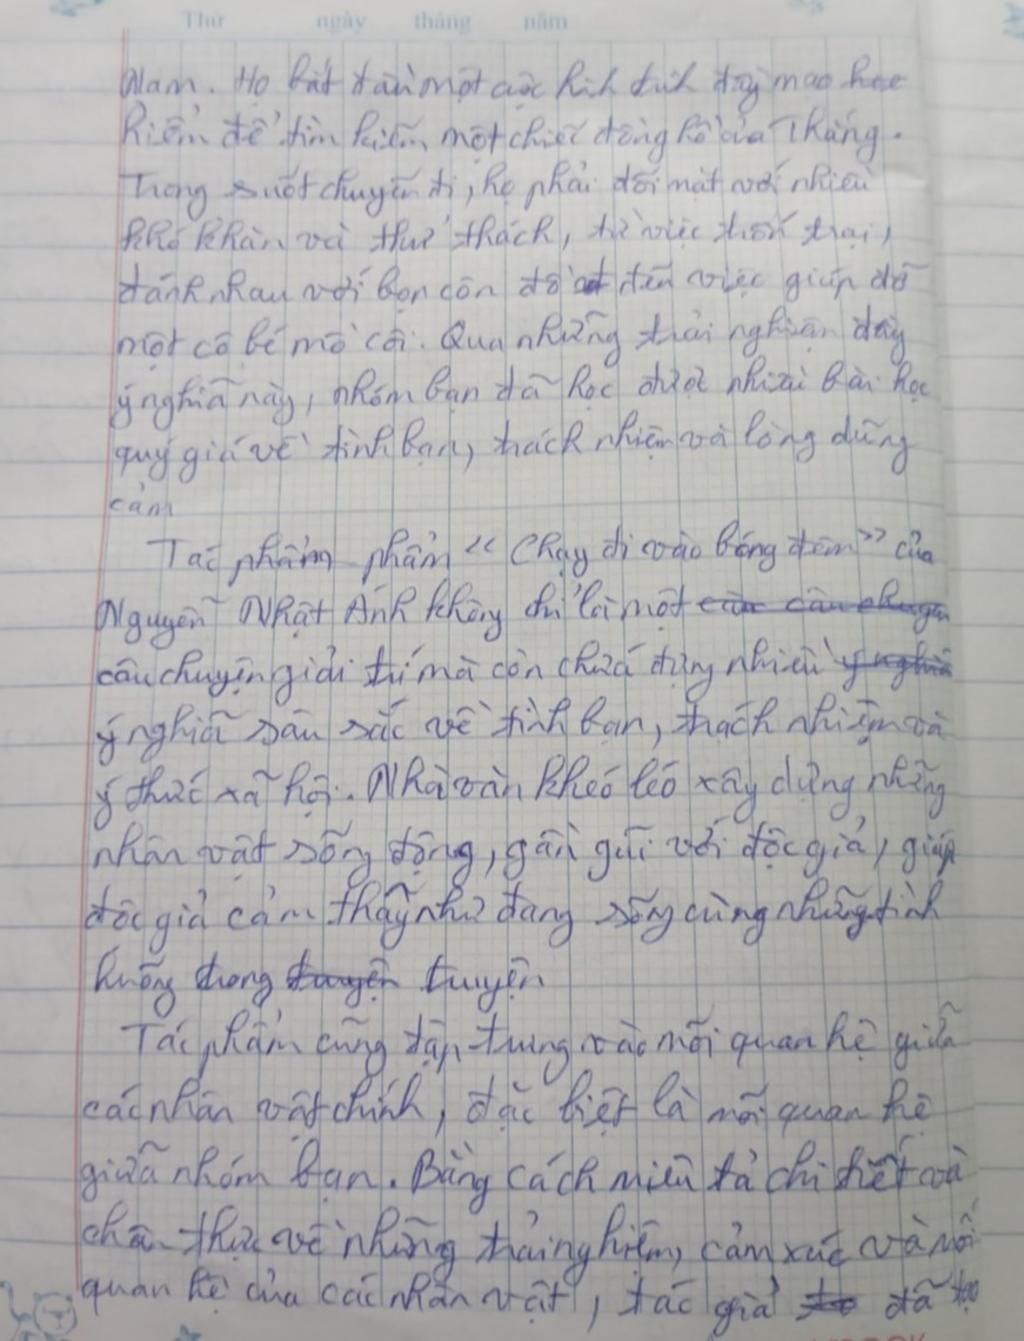 Thứ ngày tháng năm
Nam. Họ bắt đầu một cuộc hành trình đầy mạo
hiểm để tìm kiếm một chiếc đồng hồ của Thắng.
Trong suốt chuyến đi, họ phải đối mặt với nhiều
khó khăn và thử thách, từ việc trốn trại,
đánh nhau với bọn côn đồ đến việc giúp đỡ
một cô bé mồ côi. Qua những trải nghiệm đầy
ý nghĩa này, nhóm bạn đã học được nhiều bài học
quý giá về tình bạn, trách nhiệm và lòng dũng
cảm
Tác phẩm phẩm "Chạy đi vào bóng đêm" của
Nguyễn Nhật Ánh không chỉ là một
câu chuyện giải trí mà còn chứa đựng nhiều
ý nghĩa sâu sắc về tình bạn, trách nhiệm và
ý thức xã hội. Nhà văn khéo léo xây dựng những
nhân vật sống động, gần gũi với độc giả, giúp
độc giả cảm thấy như đang sống cùng những tình
huống trong truyện
Tác phẩm cũng tập trung vào mối quan hệ giữa
các nhân vật chính, đặc biệt là mối quan hệ
giữa nhóm bạn. Bằng cách miêu tả chi tiết và
chân thực về những trải nghiệm, cảm xúc và mối
quan hệ của các nhân vật, tác giả đã tạo